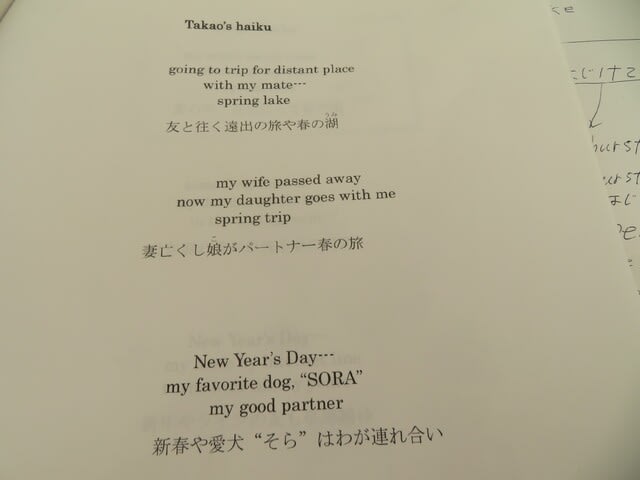 Takao's haiku
going to trip for distant place
with my mate---
spring lake
友と往く遠出の旅や春の湖
my wife passed away
now my daughter goes with me
spring trip
妻亡くし娘がパートナー春の旅
New Year's Day---
my favorite dog, "SORA"
my good partner
新春や愛犬“そら”はわが連れ合い